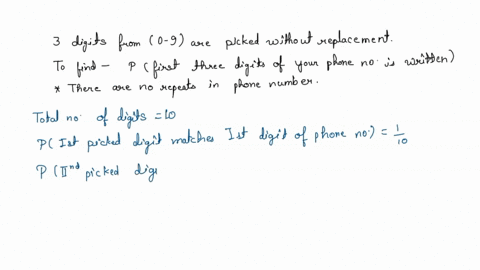 3 digits from (0-9) are picked without replacement.
To find - P (first three digits of your phone no. is written)
* There are no repeats in phone number.
Total no. of digits = 10
P( Ist picked digit matches Ist digit of phone no.) = 1/10
P (IInd picked dige